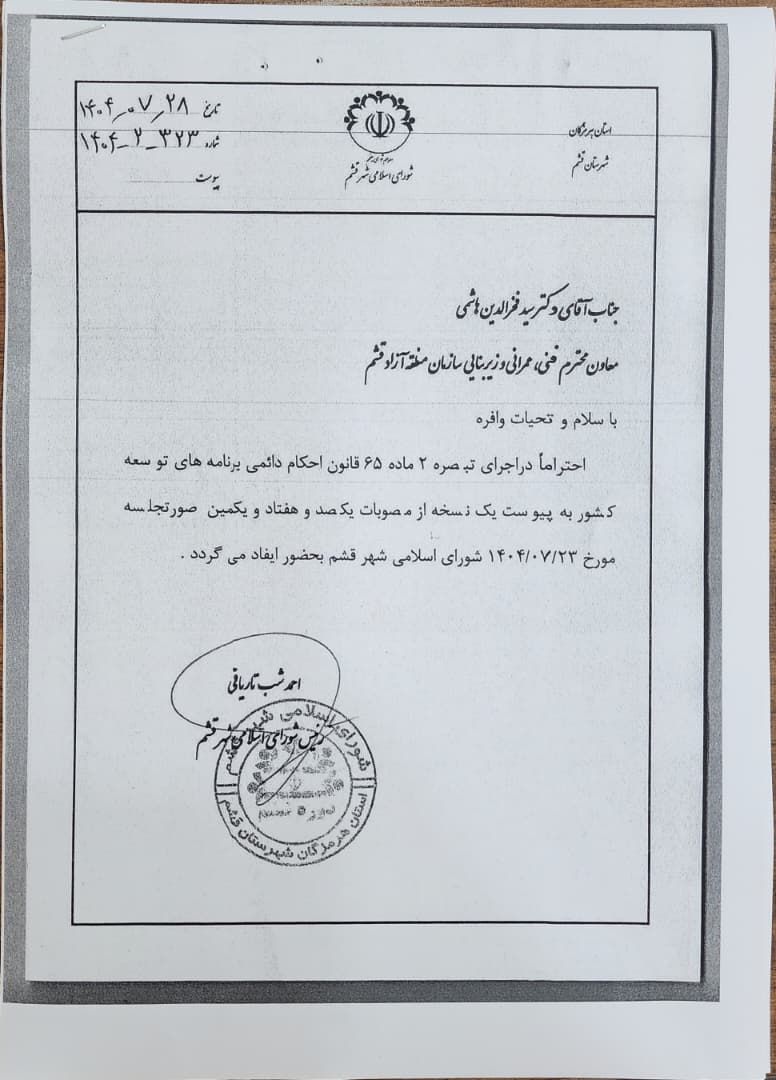 استان هرمزگان
شهرستان قشم
شورای اسلامی شهر قشم
تاریخ ۱۴۰۴/۰۷/۲۸
شماره ۱۴۰۴-۲-۳۲۳
پیوست
جناب آقای دکتر سید فخرالدین هاشمی
معاون محترم فنی، عمرانی و زیربنایی سازمان منطقه آزاد قشم
با سلام و تحیات وافره
احتراماً دراجرای تبصره ۲ ماده ۶۵ قانون احکام دائمی برنامه های توسعه
کشور به پیوست یک نسخه از مصوبات یکصد و هفتاد و یکمین صورتجلسه
مورخ ۱۴۰۴/۰۷/۲۳ شورای اسلامی شهر قشم بحضور ایفاد می گردد .
احمد شب تاریافی
رئیس شورای اسلامی شهر قشم
شورای اسلامی شهر قشم
استان هرمزگان شهرستان قشم